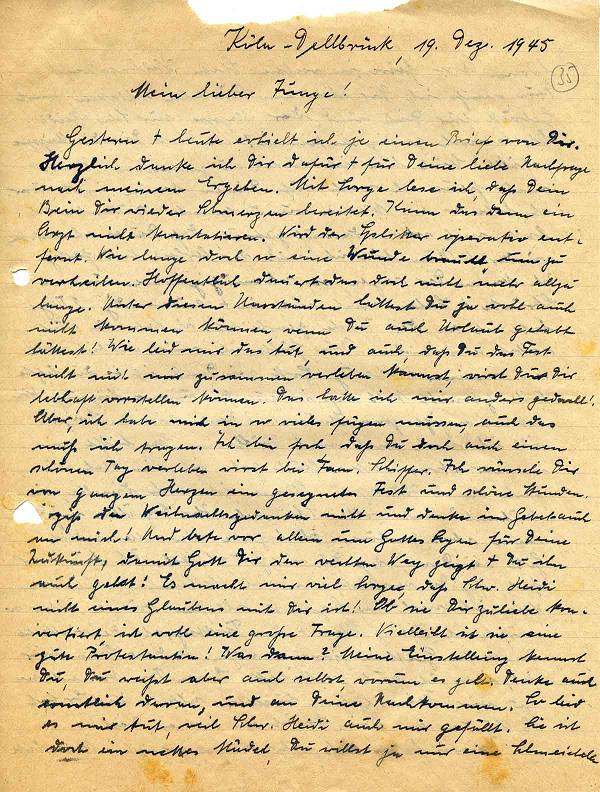 Köln-Dellbrück, 19. Dez. 1945
35
Mein lieber Junge!
Gestern + heute erhielt ich je einen Brief von Dir.
Herzlich danke ich Dir dafür + für Deine liebe Nachfrage
nach meinem Ergehen. Mit Sorge lese ich, daß Dein
Bein Dir wieder Schmerzen bereitet. Kann das denn ein
Arzt nicht konstatieren. Wird der Splitter operativ ent-
fernt. Wie lange doch so eine Wunde braucht um zu
verheilen. Hoffentlich dauert das doch nicht mehr allzu
lange. Unter diesen Umständen hättest Du ja wohl auch
nicht kommen können, wenn Du auch Urlaub gehabt
hättest! Wie leid mir das tut, und auch, daß Du das Fest
nicht mit mir zusammen verleben kannst, wirst Du Dir
lebhaft vorstellen können. Das hatte ich mir anders gedacht!
Aber, ich habe mich in so vieles fügen müssen, auch das
muß ich tragen. Ich bin froh daß Du doch auch einen
schönen Tag verleben wirst bei Fam. Schiffer. Ich wünsche Dir
von ganzem Herzen ein gesegnetes Fest und schöne Stunden.
den Weihnachtsgedanken nicht und denke im Gebet auch
an mich! Und bete vor allem um Gottes Segen für Deine
Zukunft, damit Gott Dir den rechten Weg zeigt + Du ihn
auch gehst! Es macht mir viel Sorge, daß Schw. Heidi
nicht eines Glaubens mit Dir ist! Ob sie Dir zuliebe kon-
vertiert ist wohl eine große Frage. Vielleicht ist sie eine
gute Protestantin! Was dann? Meine Einstellung kennst
Du, Du weißt aber auch selbst worum es geht. Denke auch
daran, und an Deine Nachkommen. So leid
es mir tut, weil Schw. Heidi auch mir gefällt. Sie ist
doch ein nettes Mädel, Du willst ja nur eine